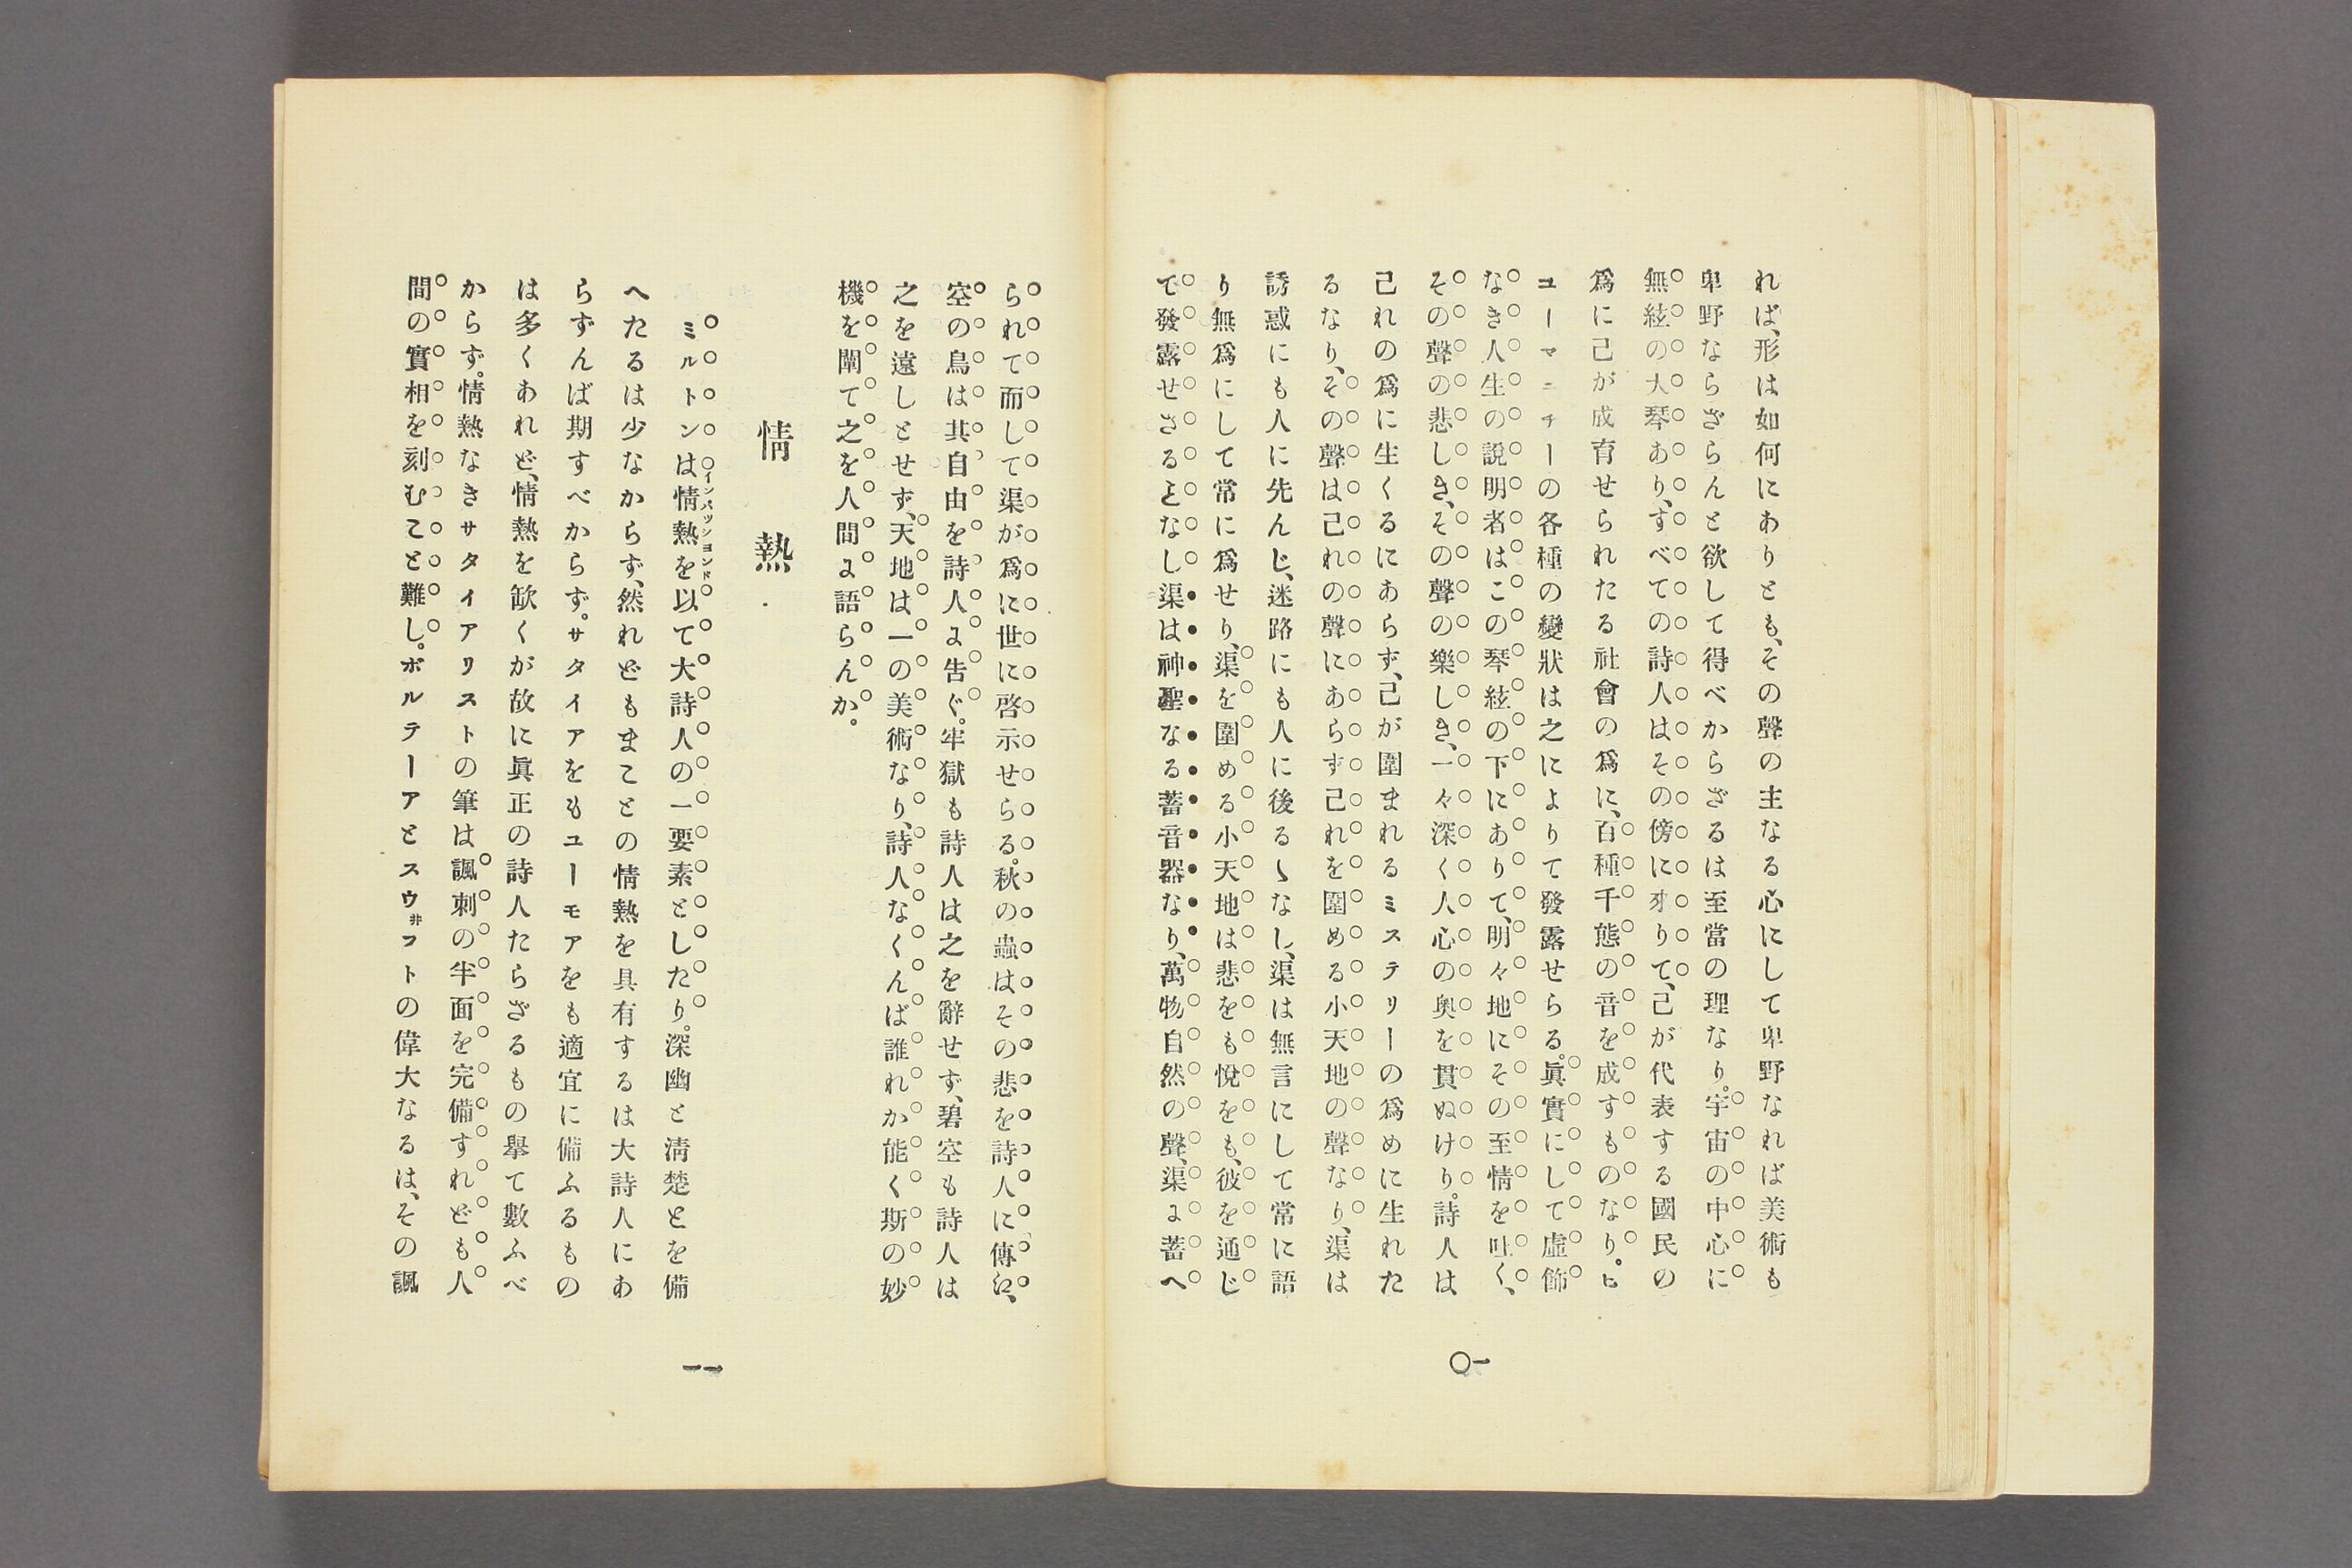 れば、形は如何にありとも、その聲の主なる心にして卑野なれば美術も
卑野ならざらんと欲して得べからざるは至當の理なり。宇宙の中心に
無絃の大琴あり、すべての詩人はその傍に才りて、己が代表する國民の
爲に己が成育せられたる社會の爲に、百種千態の音を成すものなり。ヒ
ユーマニチーの各種の變狀は之によりて發露せらる。眞實にして虛飾
なき人生の說明者はこの琴絃の下にありて、明々地にその至情を吐く、
その聲の悲しき、その聲の樂しき、一々深く人心の奧を貫ぬけり。詩人は
己れの爲に生くるにあらず、己が圍まれるミステリーの爲めに生れた
るなり、その聲は己れの聲にあらず己れを圍める小天地の聲なり、渠は
誘惑にも人に先んじ、迷路にも人に後るゝなし、渠は無言にして常に語
り無爲にして常に爲せり、渠を圍める小天地は悲をも悅をも、彼を通じ
て發露せざるとなし渠は神聖なる蓄音器なり、萬物自然の聲、渠に蓄へ
一〇
られて而して渠が爲に世に啓示せらる。秋の蟲はその悲を詩人に傳へ、
空の鳥は其自由を詩人に告ぐ。牢獄も詩人は之を辭せず、碧空も詩人は
之を遠しとせず、天地は一の美術なり、詩人なくんば誰れか能く斯の妙
機を闡て之を人間に語らんか。
情熱
ミルトンは情熱を以て大詩人の一要素としたり。深幽と淸楚とを備
インパツシヨンド
へたるは少なからず、然れどもまことの情熱を具有するは大詩人にあ
らずんば期すべからず。サタイアをもユーモアをも適宜に備ふるもの
は多くあれど、情熱を缺くが故に眞正の詩人たらざるもの擧て數ふべ
からず。情熱なきサタイアリストの筆は諷刺の半面を完備すれども人
間の實相を刻むこと難し。ボルテーアとスウ井フトの偉大なるは、その諷
一一